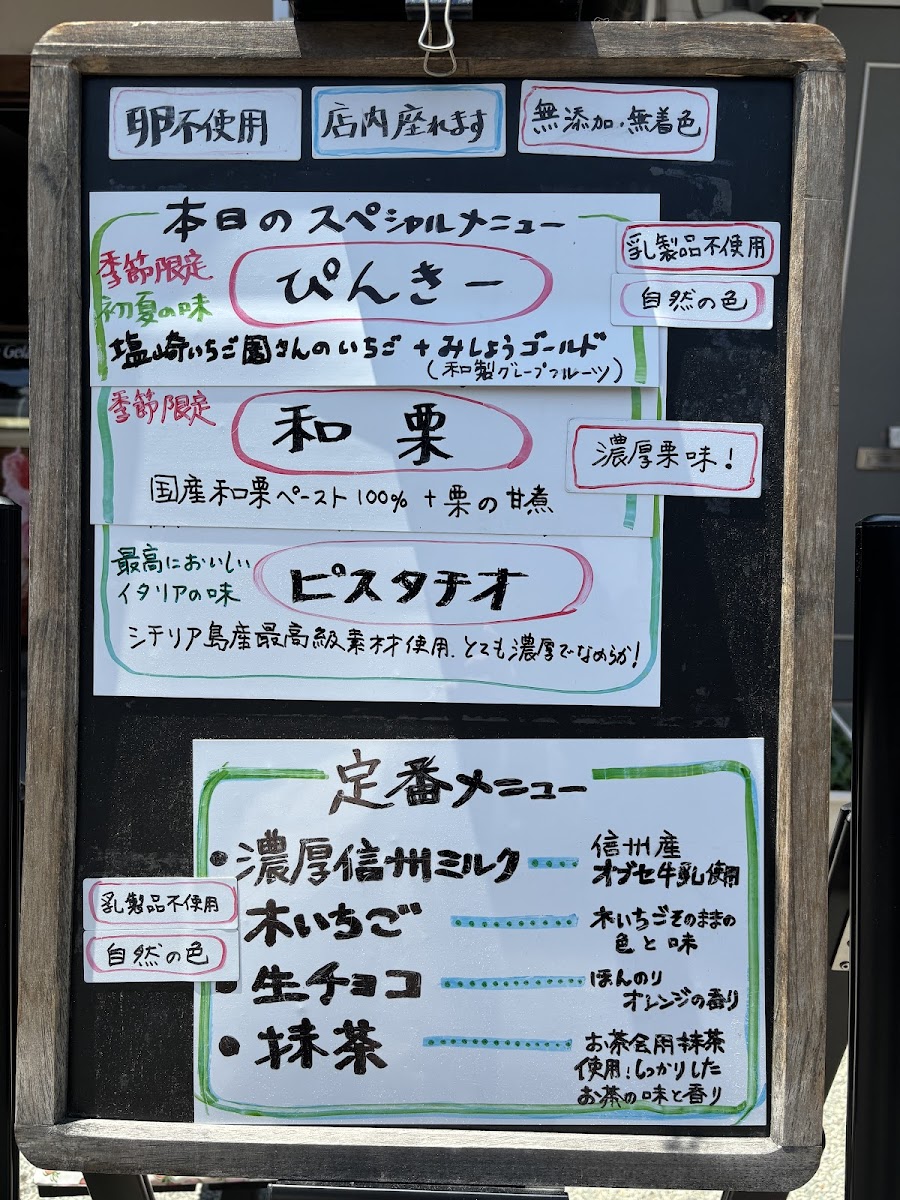 卵不使用
店内座れます
無添加・無着色
本日のスペシャルメニュー
季節限定
初夏の味
ぴんきー
乳製品不使用
自然の色
塩崎いちご園さんのいちご + みしょうゴールド
(和製グレープフルーツ)
季節限定
和栗
濃厚栗味!
国産和栗ペースト100% + 栗の甘煮
最高においしい
イタリアの味
ピスタチオ
シチリア島産最高級素材使用、とても濃厚でなめらか!
定番メニュー
・濃厚信州ミルク
信州産
オブセ牛乳使用
乳製品不使用
自然の色
木いちご
木いちごそのままの
色と味
・生チョコ
ほんのり
オレンジの香り
・抹茶
お茶会用抹茶
使用!しっかりした
お茶の味と香り